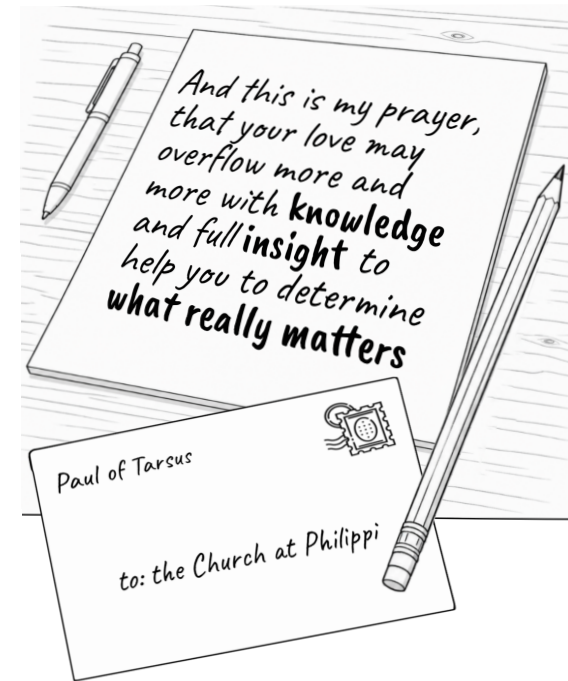 And this is my prayer,
that your love may
overflow more and
more with knowledge
and full insight to
help you to determine
what really matters
Paul of Tarsus
to: the Church at Philippi